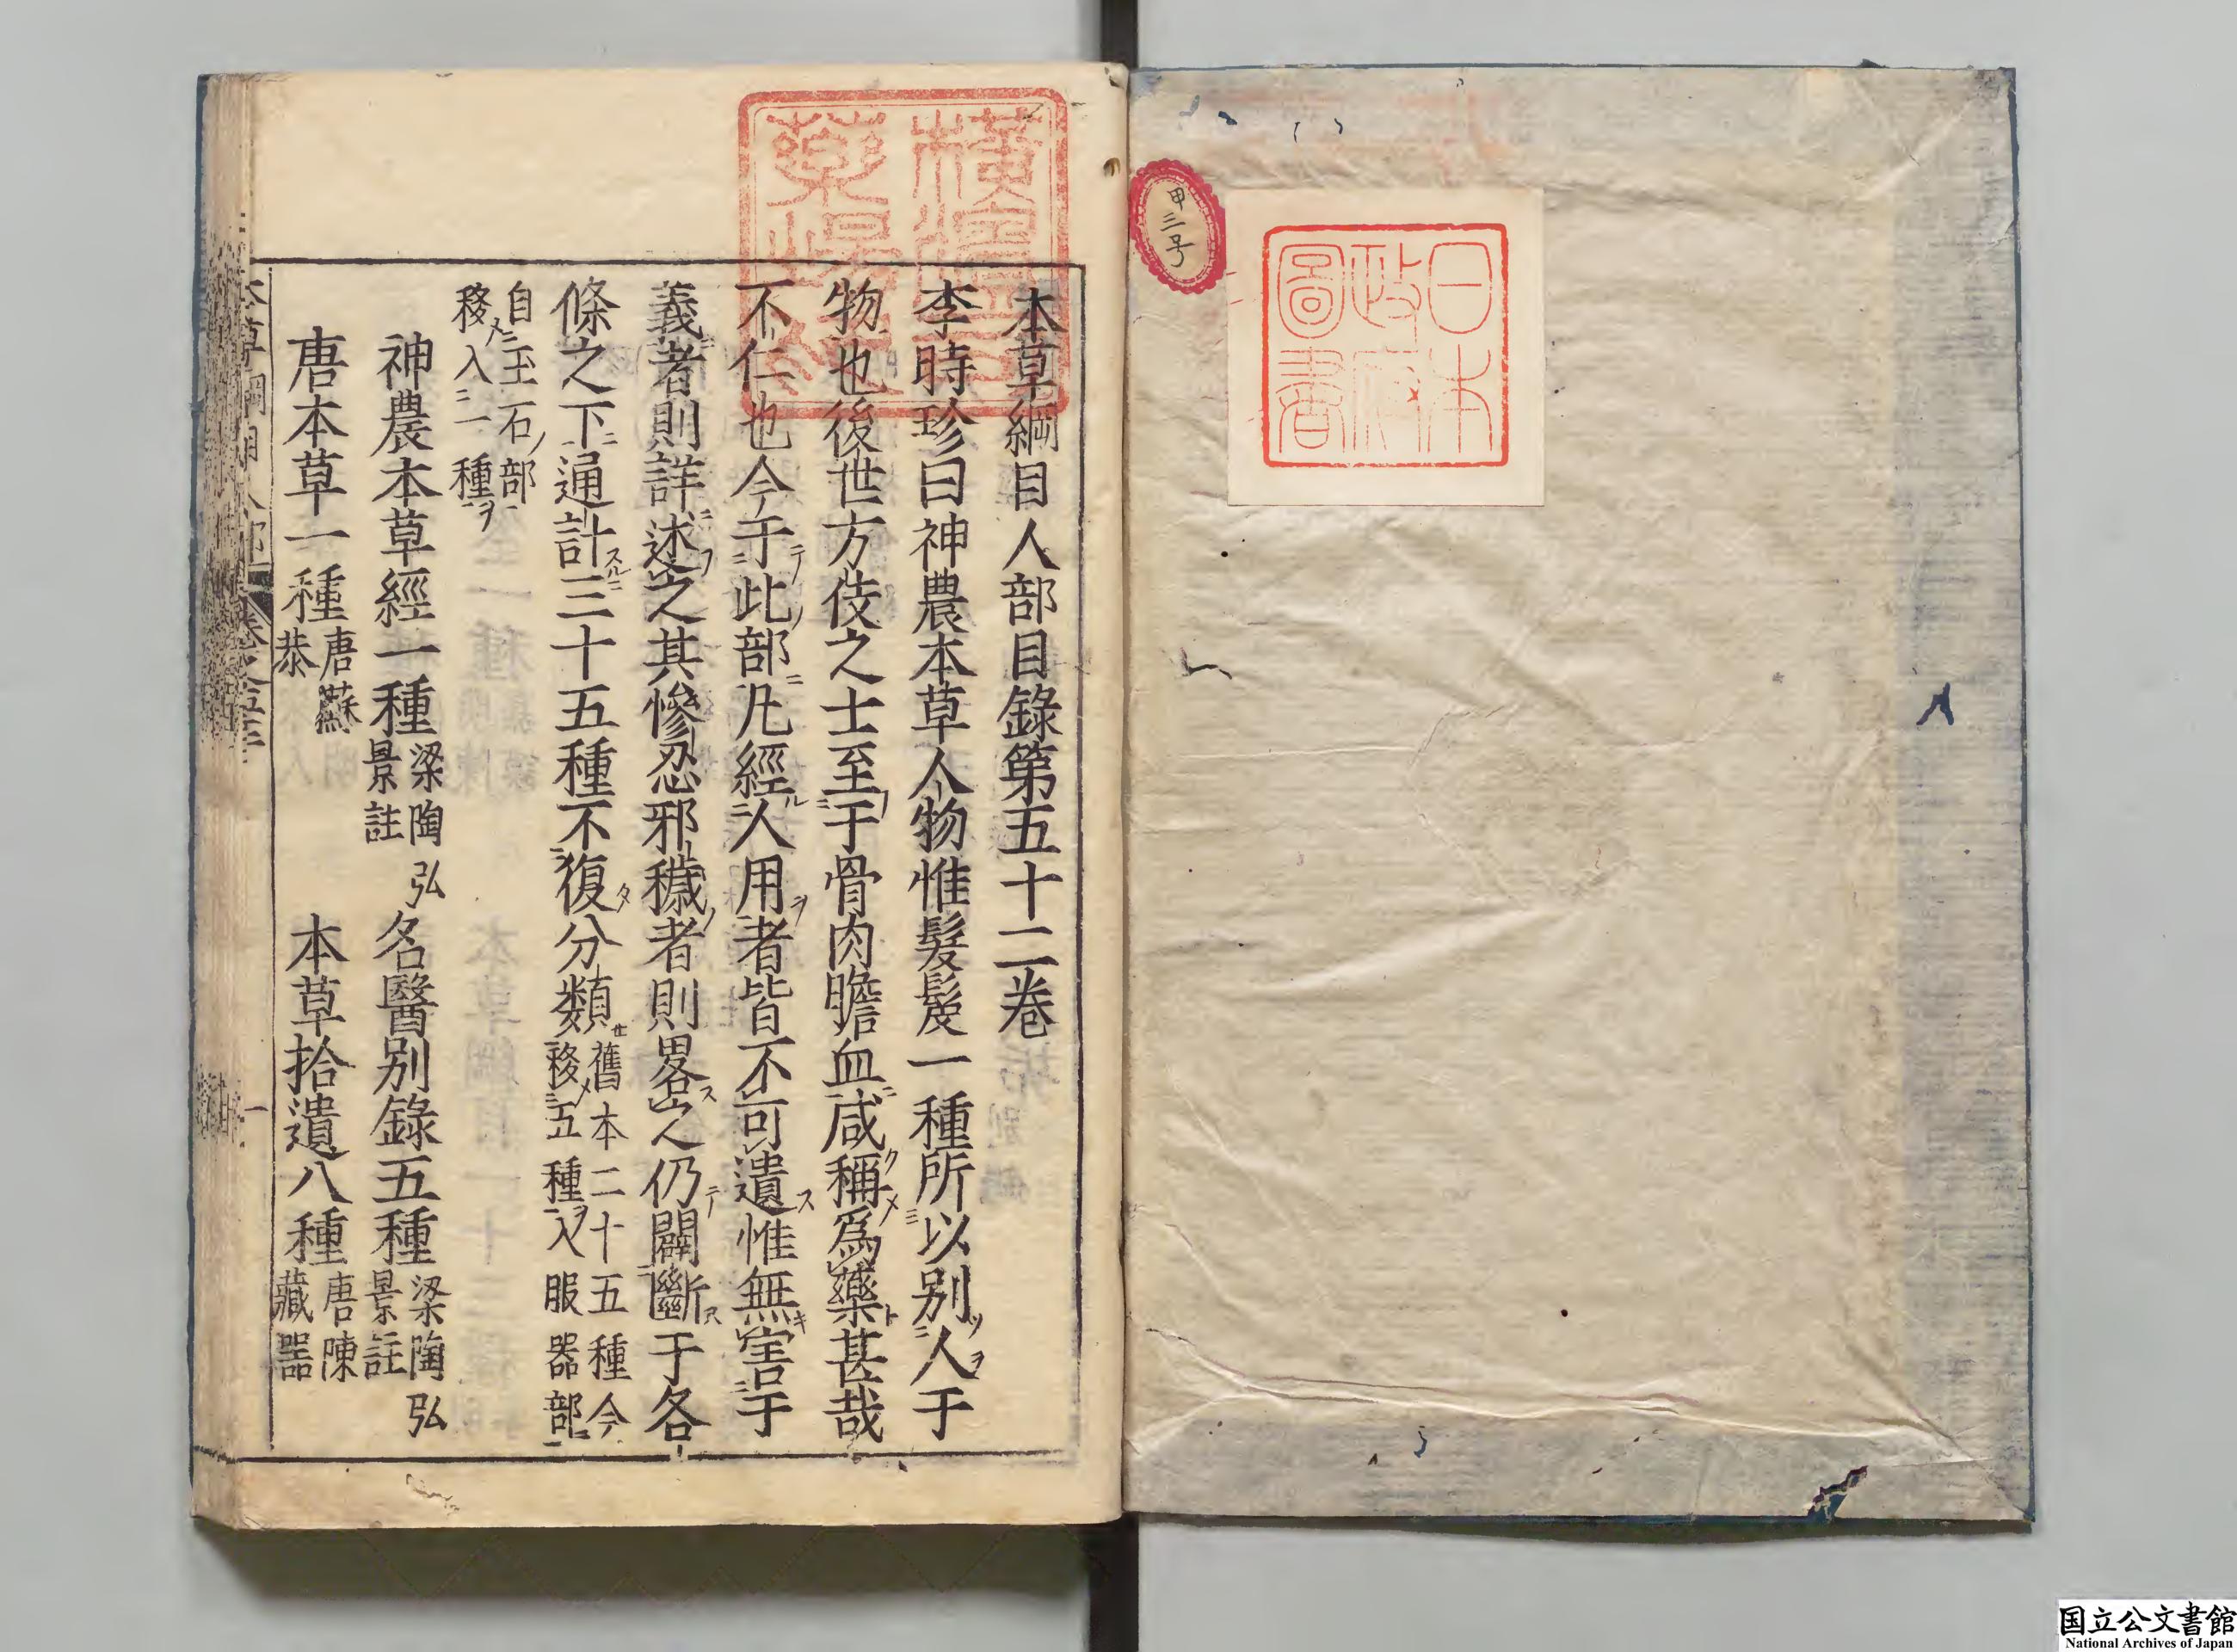 日本
政府
圖書
甲三号
本草綱目人部目錄第五十二卷
李時珍曰神農本草人物惟髮髲一種所以别人于
物也後世方伎之士至于骨肉膽血咸稱爲藥甚哉
不仁也今于此部凡經人用者皆不可遺惟無害于
義者則詳述之其慘忍邪穢者則畧之仍闢斷于各
條之下通計三十五種不復分類舊本二十五種今
移五種入服器部
自玉石部
移入一種
神農本草經一種梁陶弘
景註
名醫别錄五種梁陶弘
景註
唐本草一種唐蘇
恭
本草拾遺八種唐陳
藏器
国立公文書館
National Archives of Japan